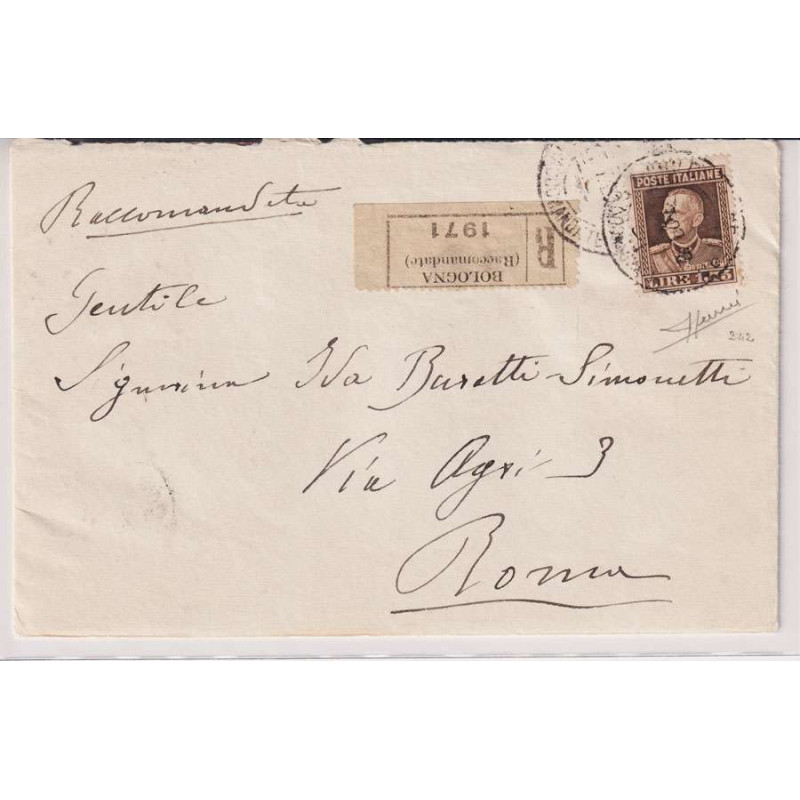 Raccomandata
BOLOGNA
(Raccomandate)
R
1971
POSTE ITALIANE
LIRE 1,75
Gentile
Signorina Ida Buretti-Simonetti
Via Agri 3
Roma
242